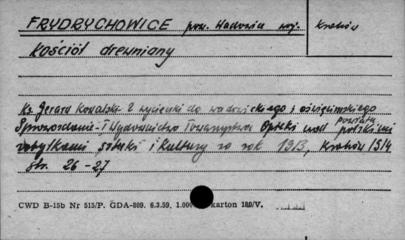 FRYDRYCHOWICE pow. Wadowice woj. Kraków
Kościół drewniany
Ks. Gerard Kowalski Z wycieczki do wadowickiego i oświęcimskiego
powiatu
Sprawozdanie i Wydawnictwo Towarzystwa Opieki nad polskimi
zabytkami sztuki i kultury za rok 1913, Kraków 1914
str. 26-27
CWD B-15b Nr 515/P. GDA-809. 6.3.59. 1.000 karton 180/V.